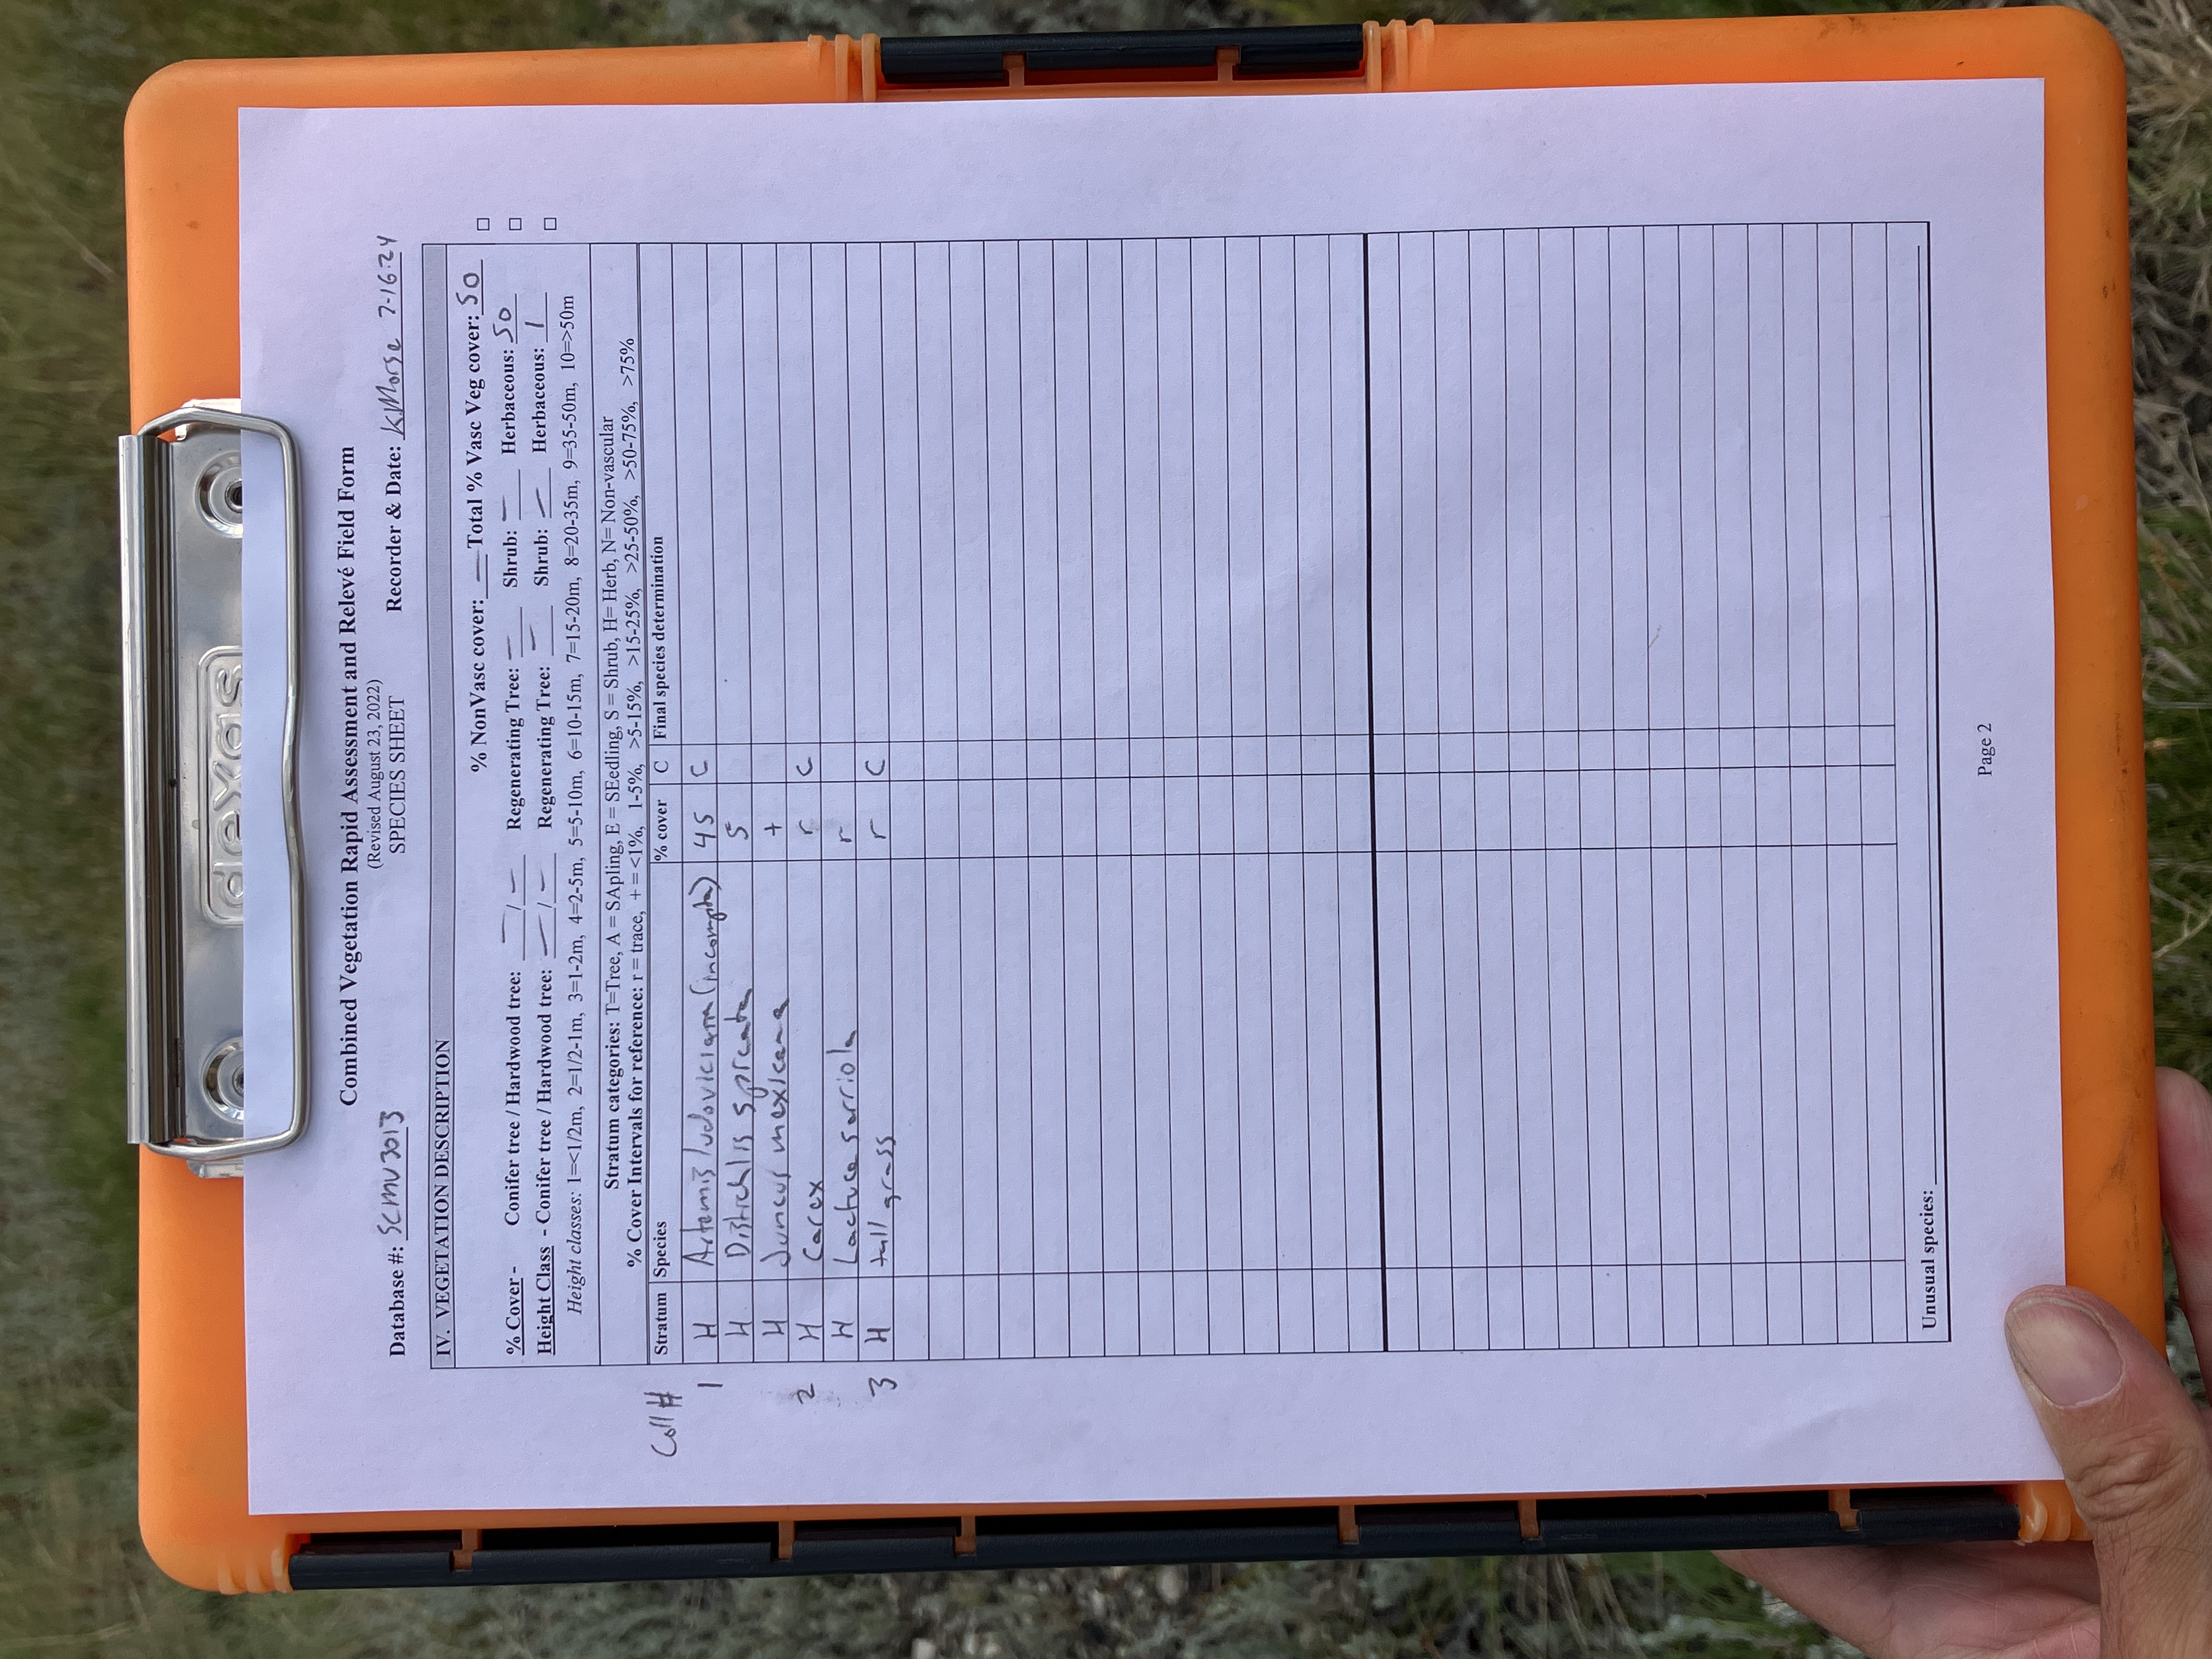 dexas
Combined Vegetation Rapid Assessment and Relevé Field Form
(Revised August 23, 2022)
SPECIES SHEET
Database #: SCMV3013 Recorder & Date: KMorse 7-16-24
IV. VEGETATION DESCRIPTION
% NonVasc cover: — Total % Vasc Veg cover: 50 □
% Cover - Conifer tree / Hardwood tree: — / — Regenerating Tree: — Shrub: — Herbaceous: 50 □
Height Class - Conifer tree / Hardwood tree: — / — Regenerating Tree: — Shrub: — Herbaceous: 1 □
Height classes: 1=<1/2m, 2=1/2-1m, 3=1-2m, 4=2-5m, 5=5-10m, 6=10-15m, 7=15-20m, 8=20-35m, 9=35-50m, 10=>50m
Stratum categories: T=Tree, A = SApling, E = SEedling, S = Shrub, H= Herb, N= Non-vascular
% Cover Intervals for reference: r = trace, + = <1%, 1-5%, >5-15%, >15-25%, >25-50%, >50-75%, >75%
Coll # Stratum Species % cover C Final species determination
1 H Artemis ludoviciana (incompta) 45 C
H Distichlis spicata 5
H Juncus mexicana +
2 H Carex r C
H Lactuca serriola r
3 H tall grass r C
Unusual species:
Page 2